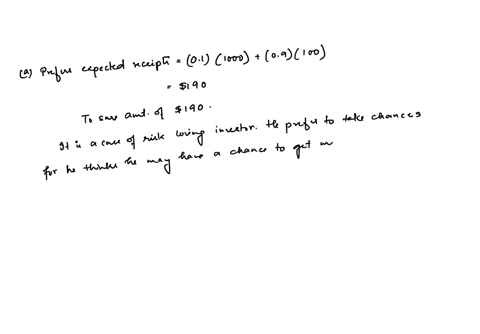 (a) Prefers expected receipts = (0.1) (1000) + (0.9) (100)
= $190
To sure amt. of $190.
It is a case of risk loving investor. He prefers to take chances
for he thinks he may have a chance to get m